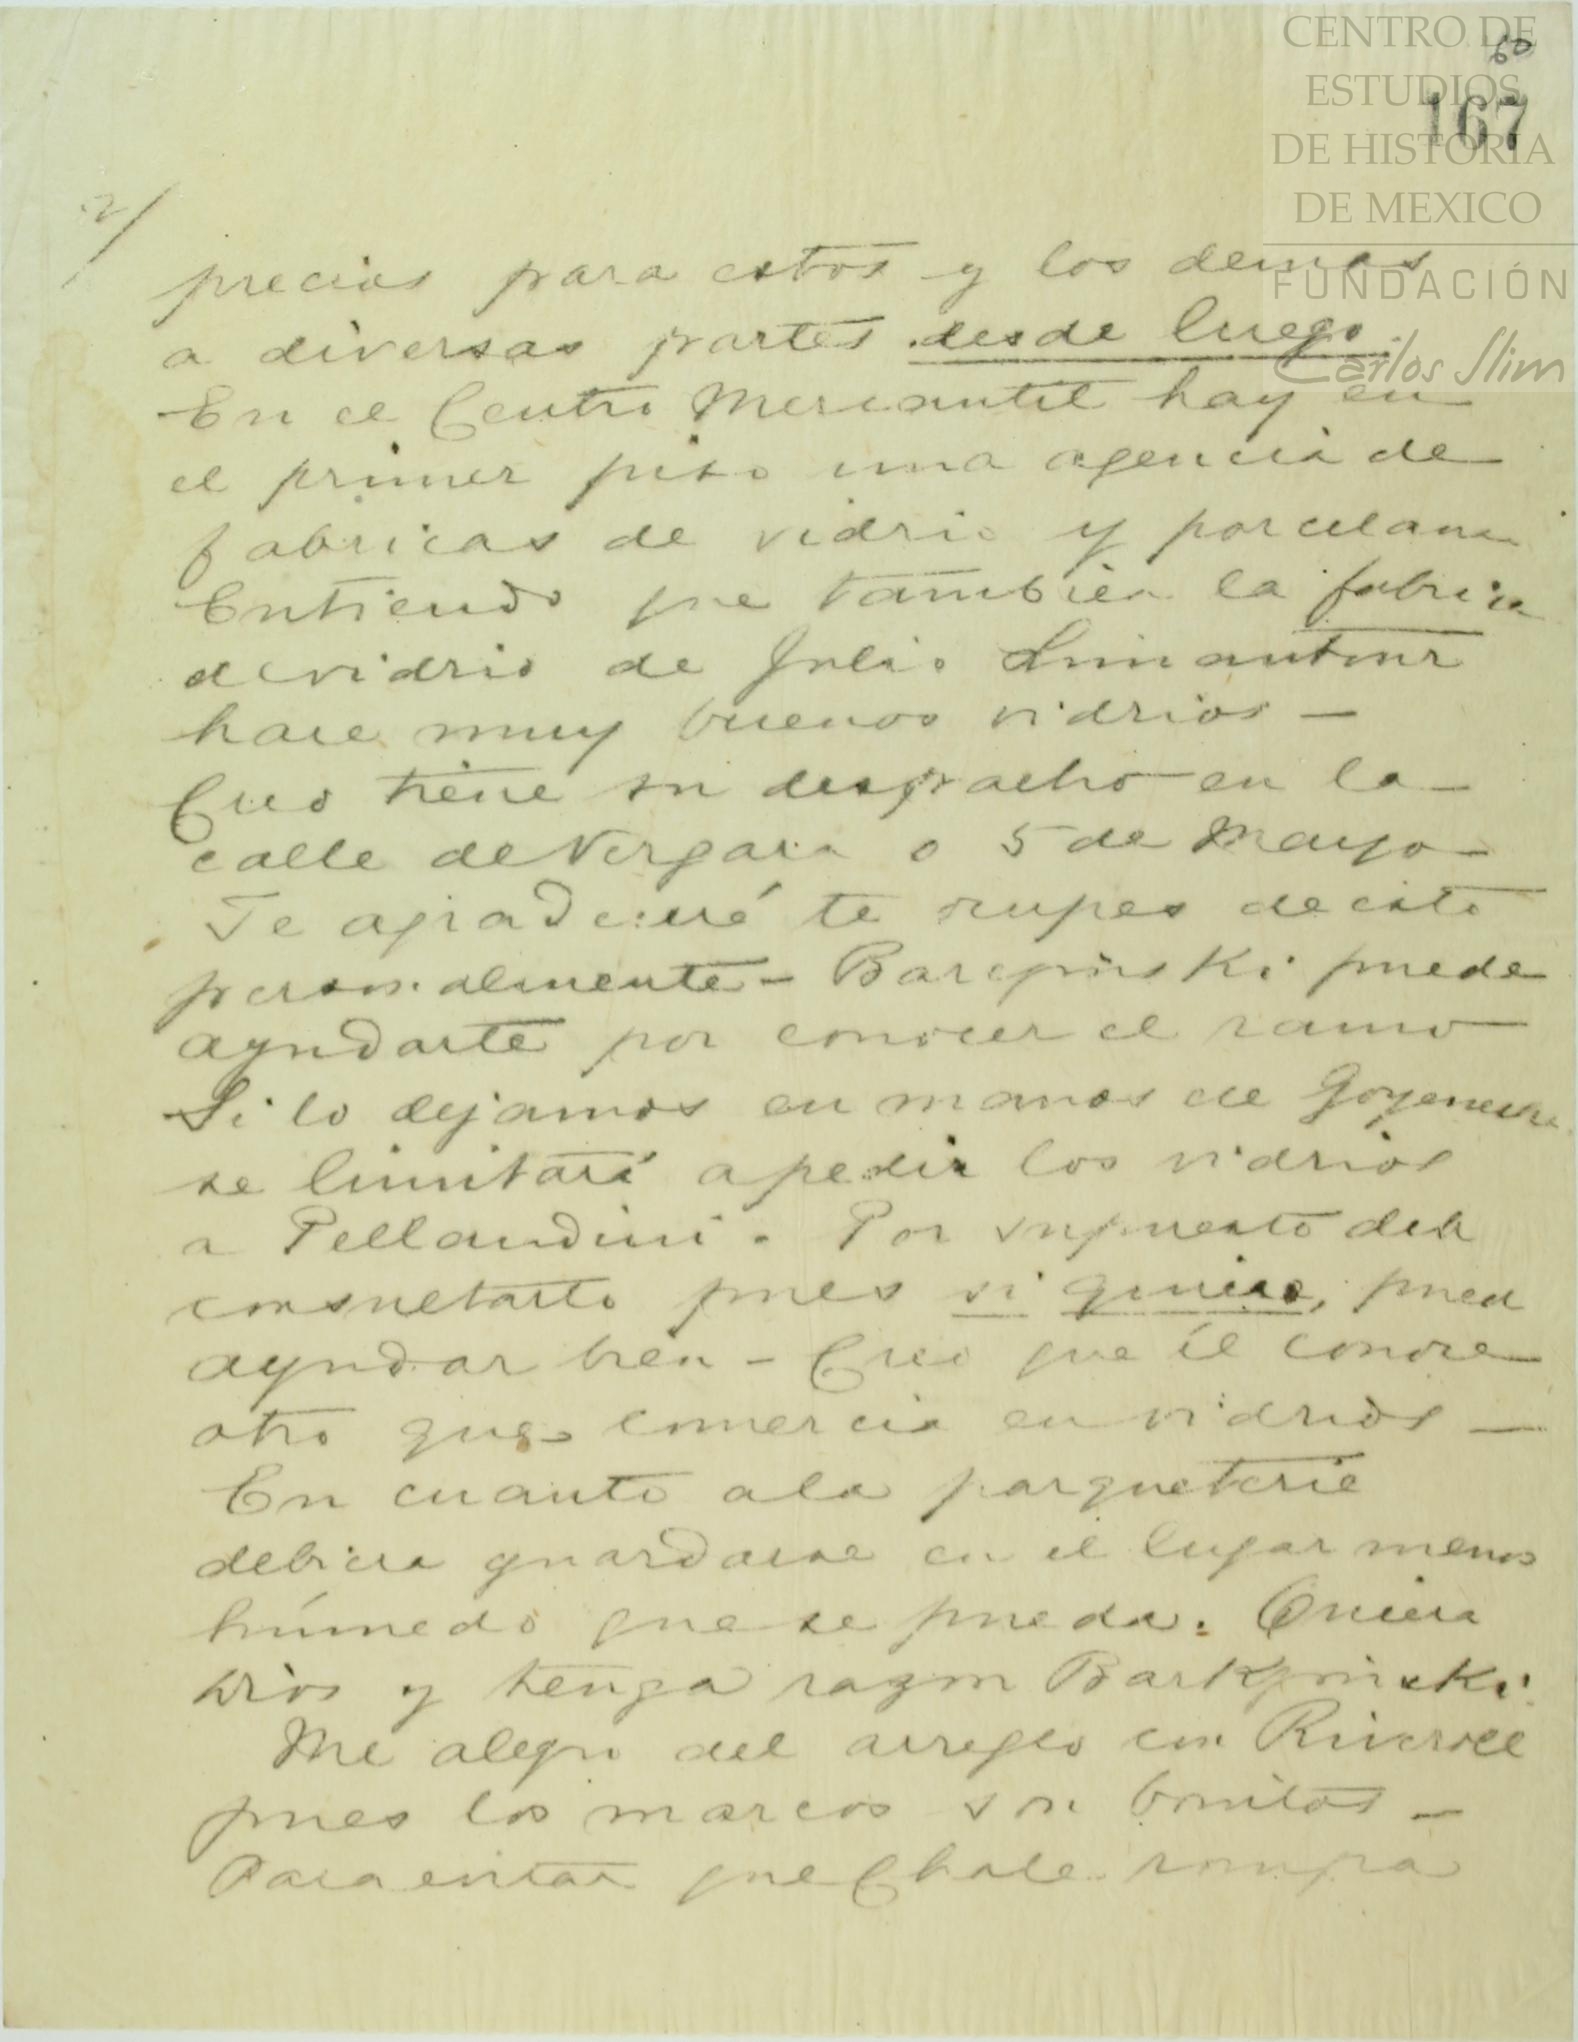 CENTRO DE
ESTUDIOS
DE HISTORIA
DE MEXICO
FUNDACIÓN
Carlos Slim
60
167
2/
precios para estos y los demas
a diversas partes desde luego
En el Centro Mercantil hay en
el primer piso una agencia de
fabricas de vidrio y porcelana
Entiendo que tambien la fabrica
de vidrio de Julio Limantour
hace muy buenos vidrios —
Creo tiene su despacho en la
calle de Vergara o 5 de Mayo —
Te agradeceré te ocupes de esto
personalmente — Barepinski puede
ayudarte por conocer el ramo
Si lo dejamos en manos de Goyeneche
se limitará a pedir los vidrios
a Pellandini. Por supuesto debe
consultarto pues si quiere, puede
ayudar bien — Creo que él conoce
otro que comercia en vidrios —
En cuanto a la parqueterie
debiera guardarse en el lugar menos
húmedo que se pueda. Quiera
Dios y tenga razon Barkpinski.
Me alegro del arreglo con Riveroll
pues los marcos son bonitos —
Para evitar que Chale rompa